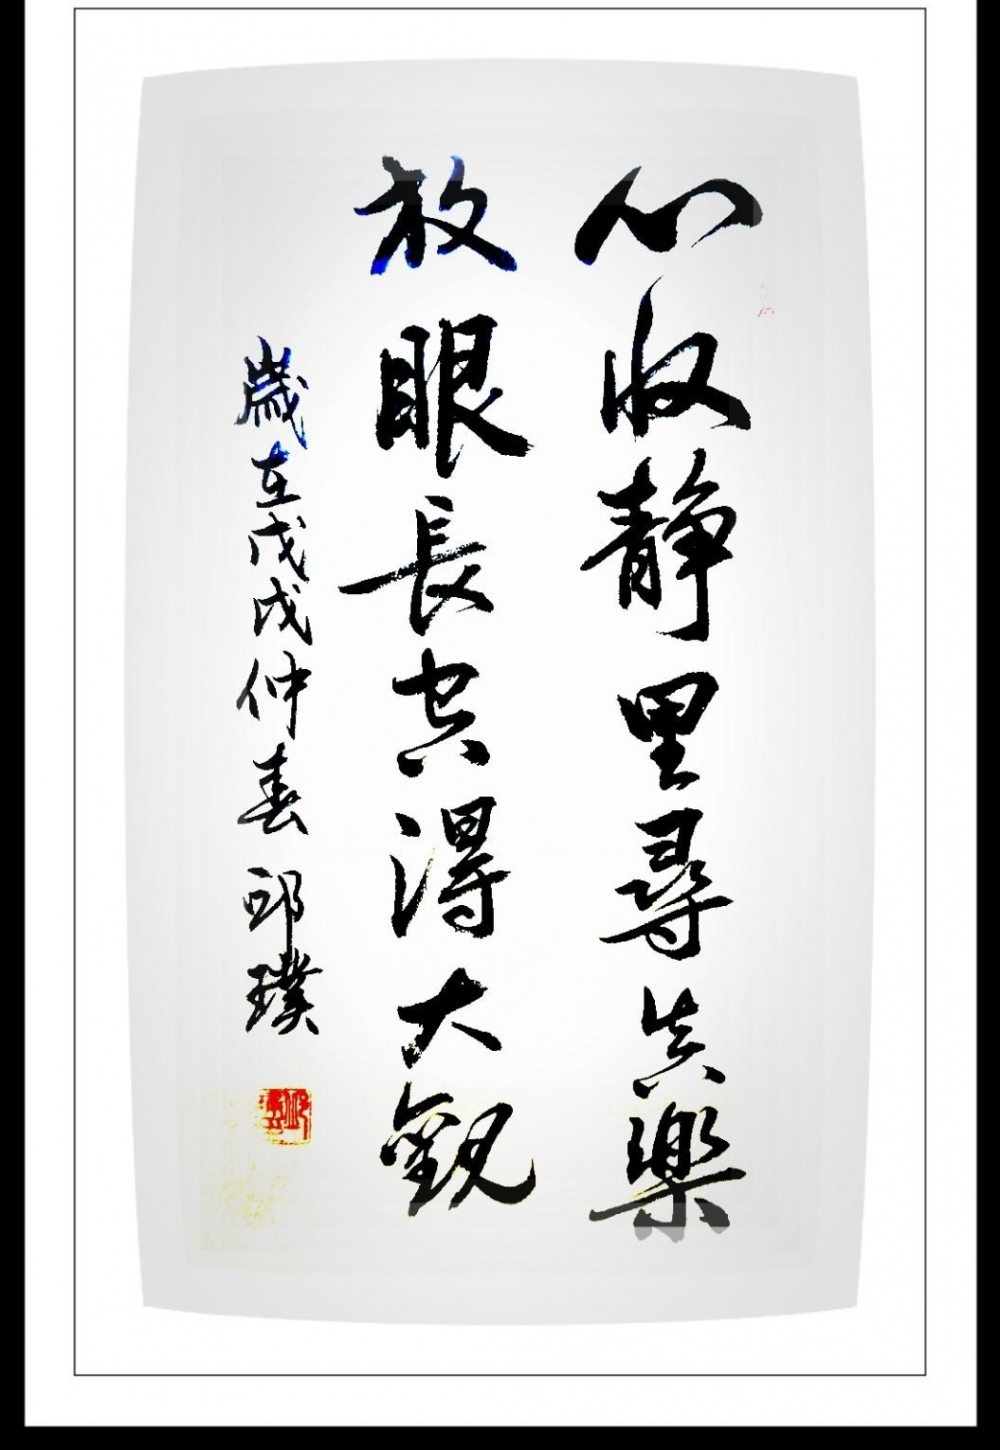 心收静里尋真樂
放眼長空得大觀
歲在戊戌仲春邱璞